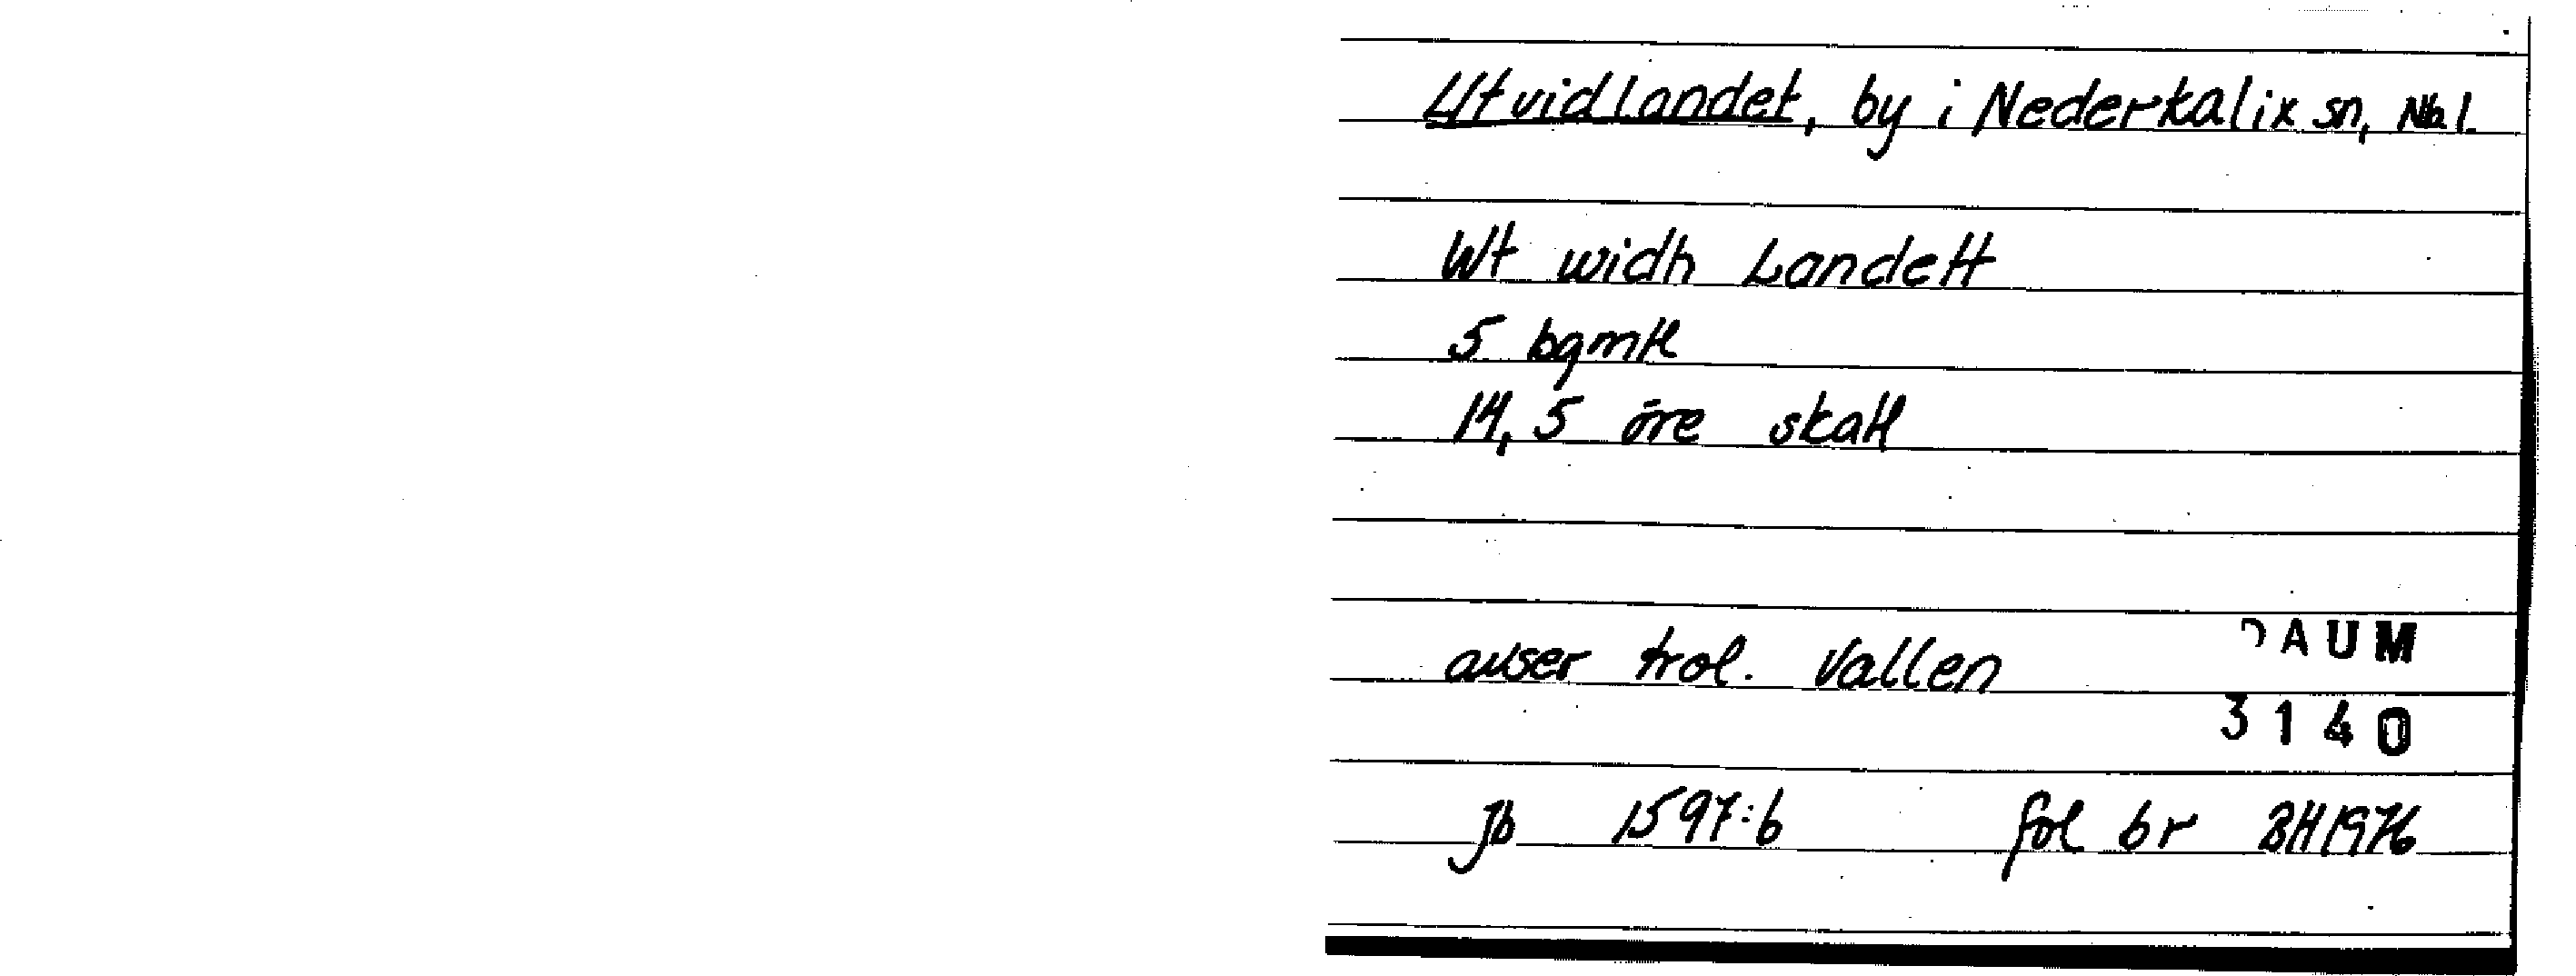 Utvidlandet, by i Nederkalix sn, Nb.l.
Wt widh Landett
5 bgmtl
14,5 öre skatt
avser trol. Vallen
DAUM
3140
Jb 1597:6 fol 6r BH1976